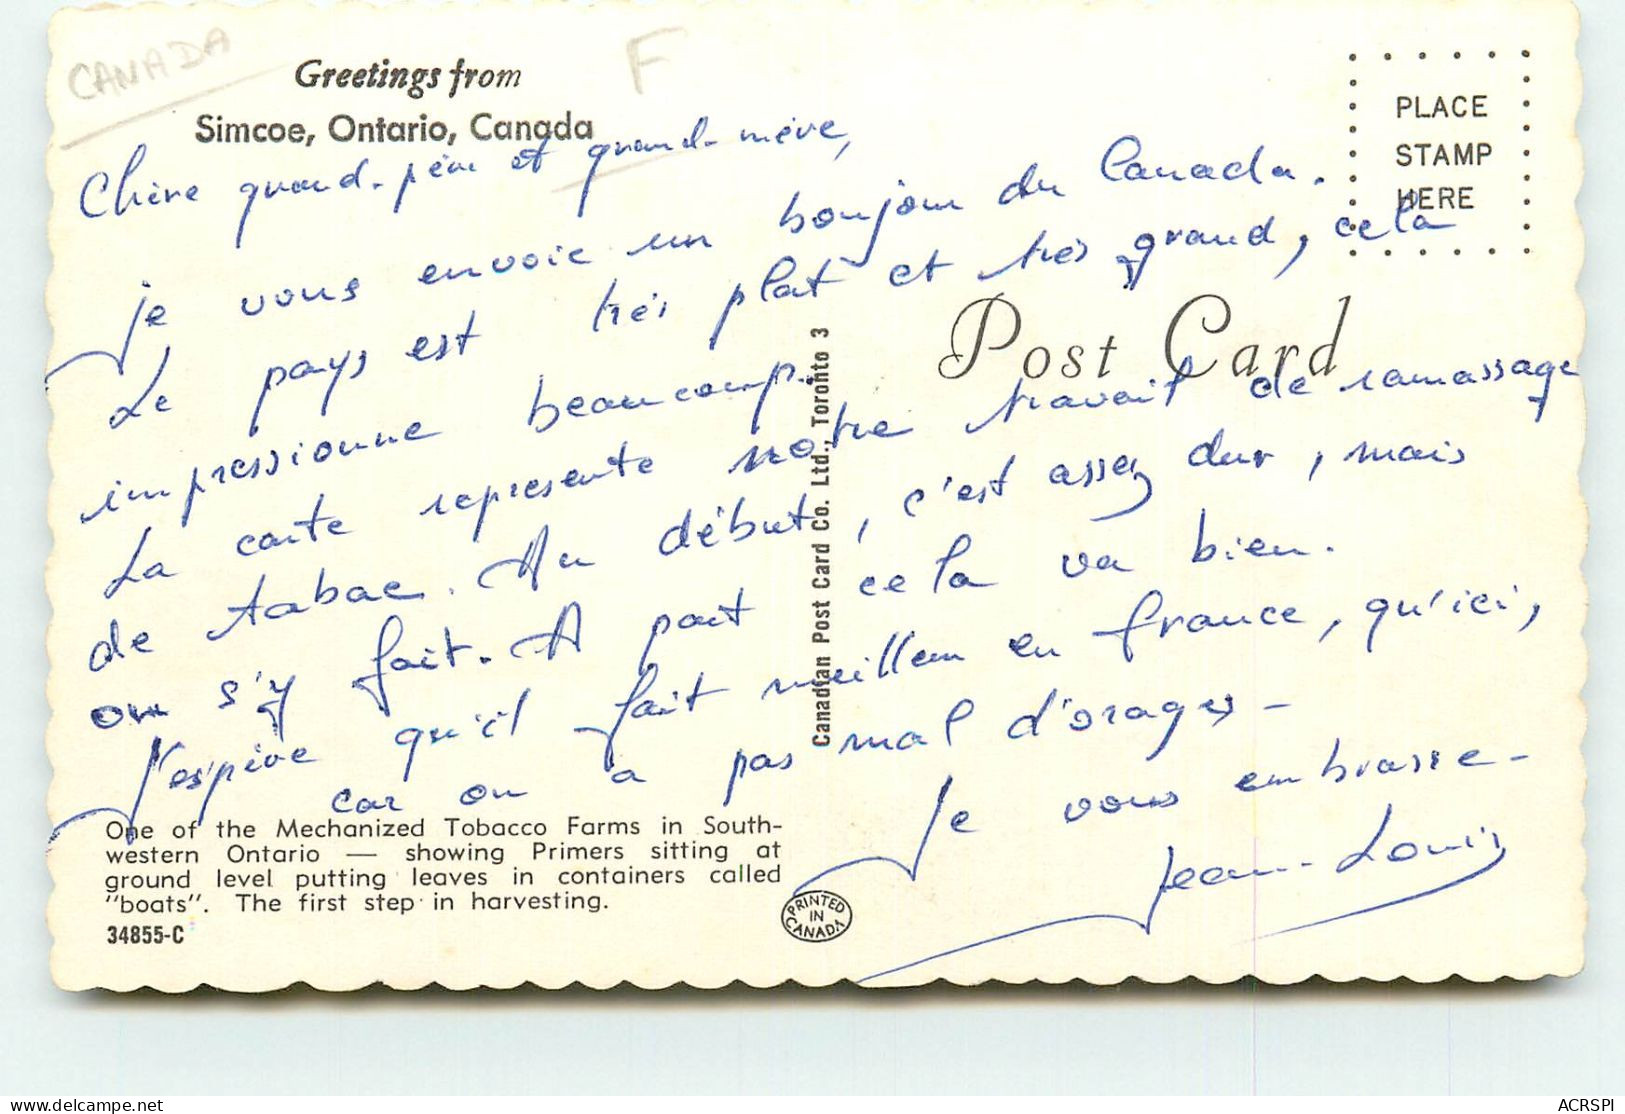 CANADA
F
Greetings from
Simcoe, Ontario, Canada
PLACE
STAMP
HERE
Chère grand-père et grand-mère,
je vous envoie un bonjour du Canada.
Le pays est très plat et très grand, cela
impressionne beaucoup.
Post Card
La carte represente notre travail de ramassage
de tabac. Au début, c'est assez dur, mais
on s'y fait. A part cela va bien.
J'espère qu'il fait meilleur en france, qu'ici,
car on a pas mal d'orages -
Je vous embrasse -
Jean-Louis
Canadian Post Card Co. Ltd., Toronto 3
One of the Mechanized Tobacco Farms in South-
western Ontario — showing Primers sitting at
ground level putting leaves in containers called
"boats". The first step in harvesting.
34855-C
PRINTED
IN
CANADA
delcampe.net
ACRSPI